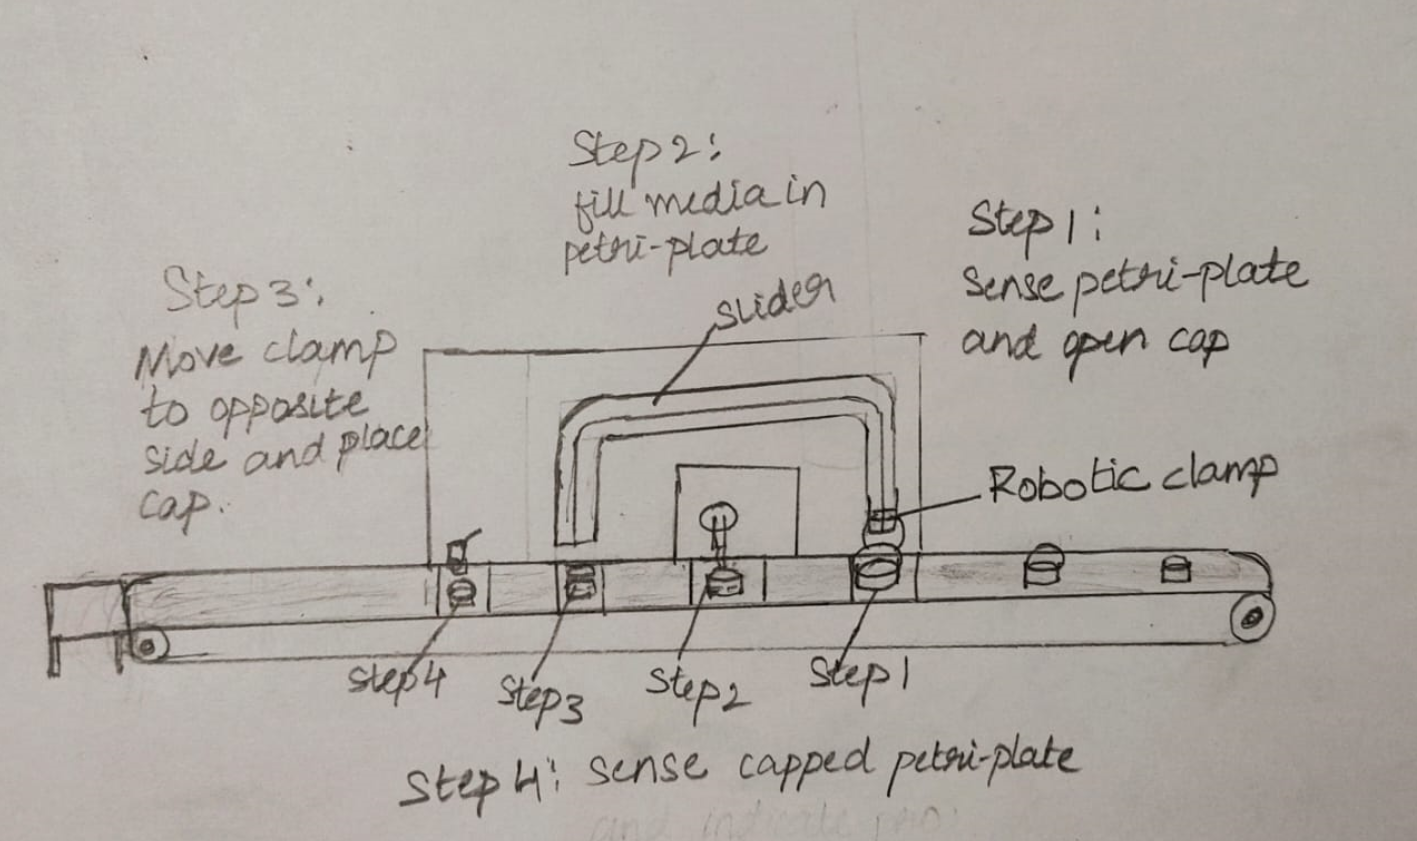 Step 2:
fill media in
petri-plate
Step 1:
Sense petri-plate
and open cap
slider
Step 3:
Move clamp
to opposite
side and place
cap.
Robotic clamp
Step 4
Step 3
Step 2
Step 1
Step 4: sense capped petri-plate
and indicate